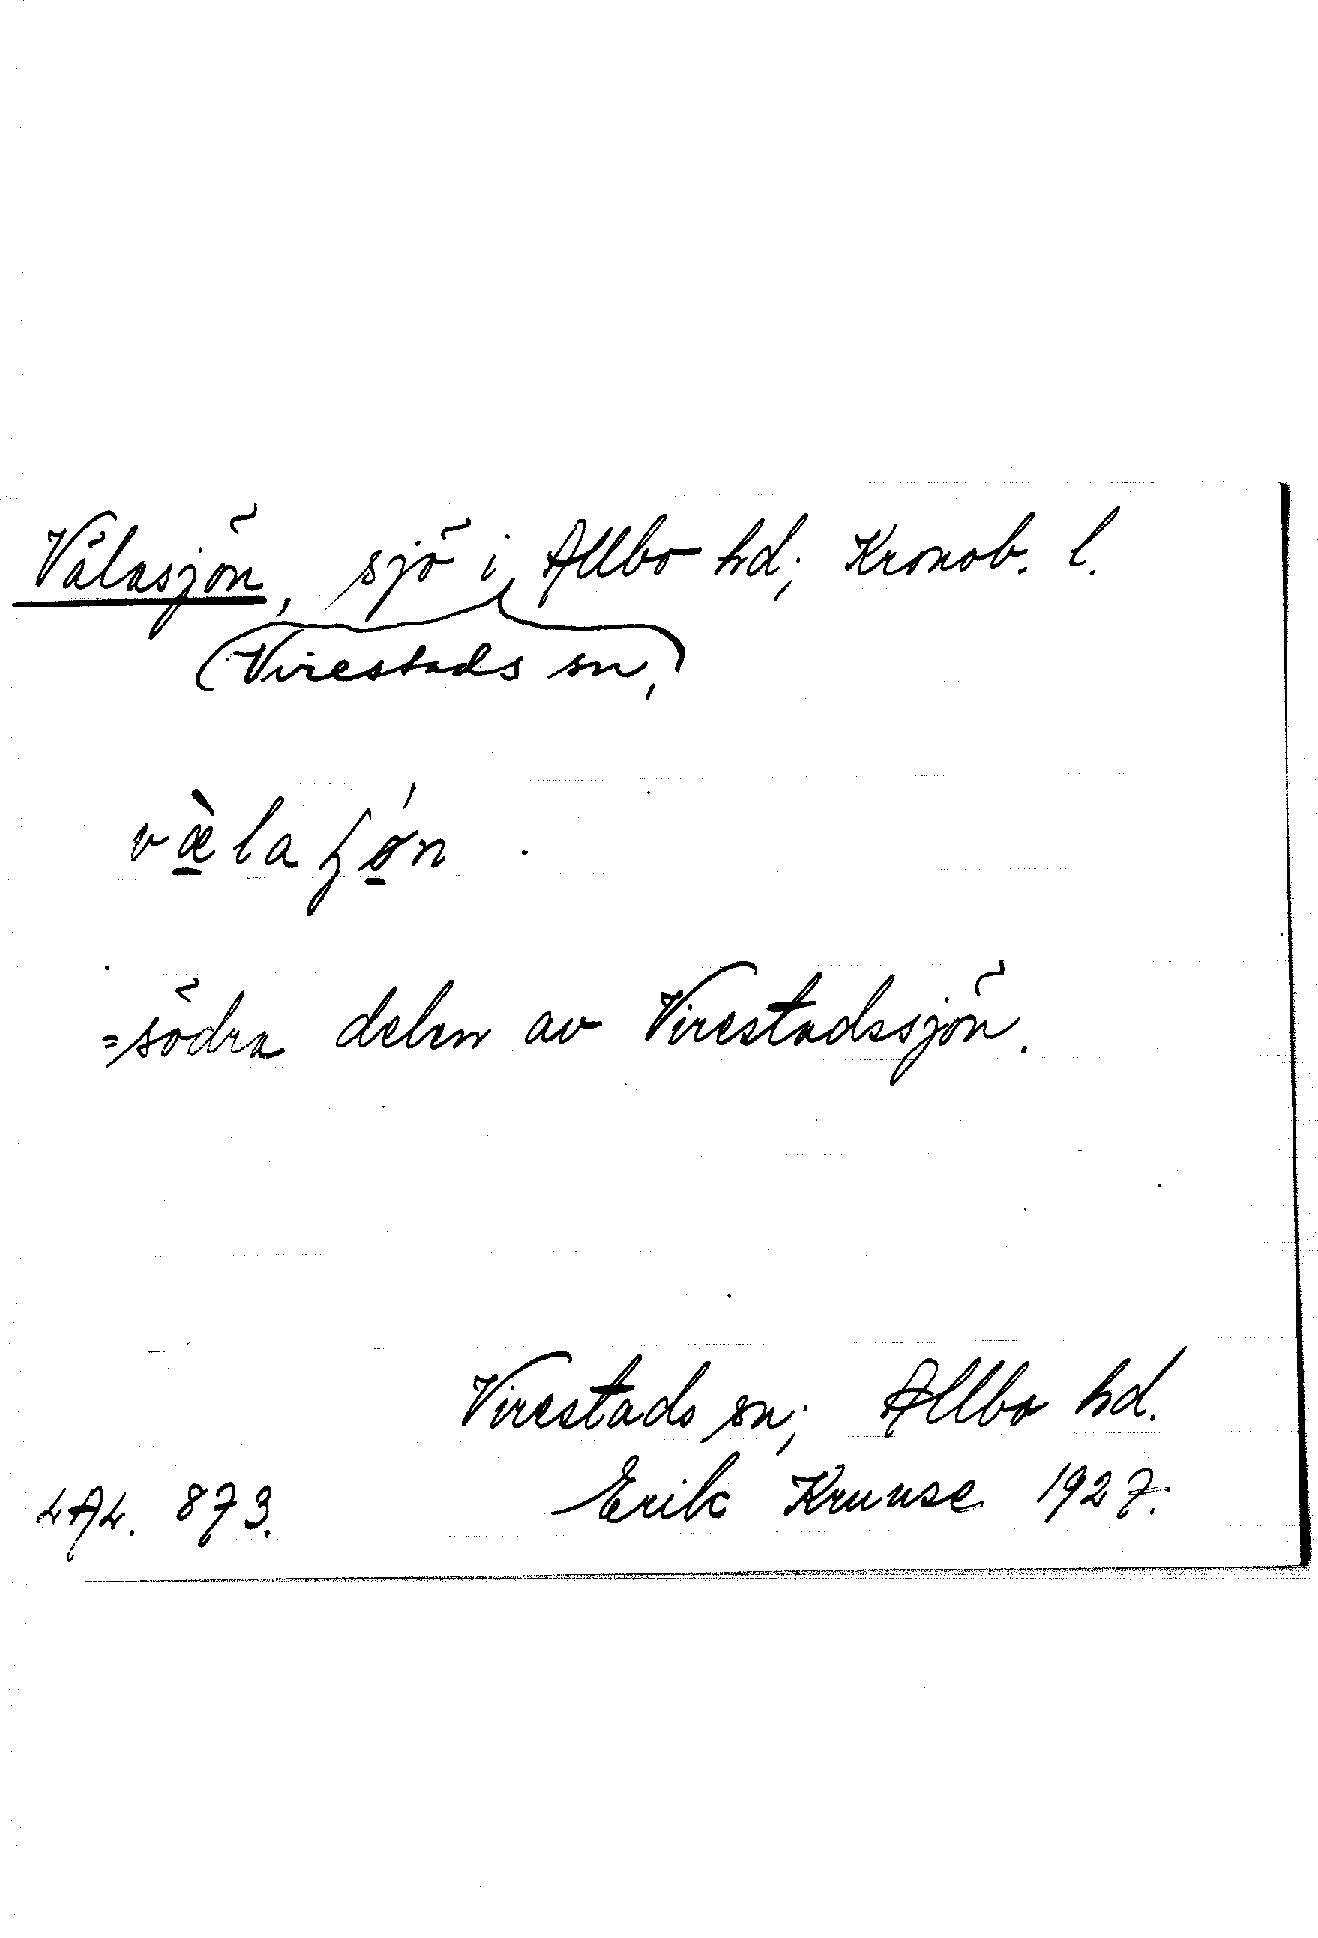 Vålasjön, sjö i Allbo hd; Kronob. l.
(Virestads sn,)
væ̀la ɧǿn
=södra delen av Virestadssjön.
Virestads sn; Allbo hd.
LAL. 873. Erik Kruuse 1927.